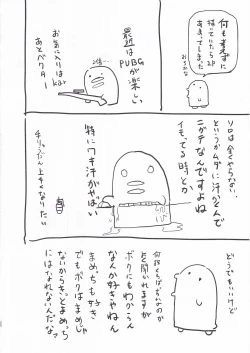 何も考えずに
あまってしまった
最近は
PUBGが
楽しい
お気に入りはkar
ソロは全くやらない…
というかムダに汗かくんで
ニガテなんですよね
イモってる時とか
特にワキ汗がやばい
手りゅうだん上手くなりたい
どうでもいいけど
何故くちばしなのか
を聞かれますが
ボクにもわからん
なんか好きやねん
まめっちも好き
でもボクはまめっちじゃ
ないからきっとまめっち
にはなれないんだなっ